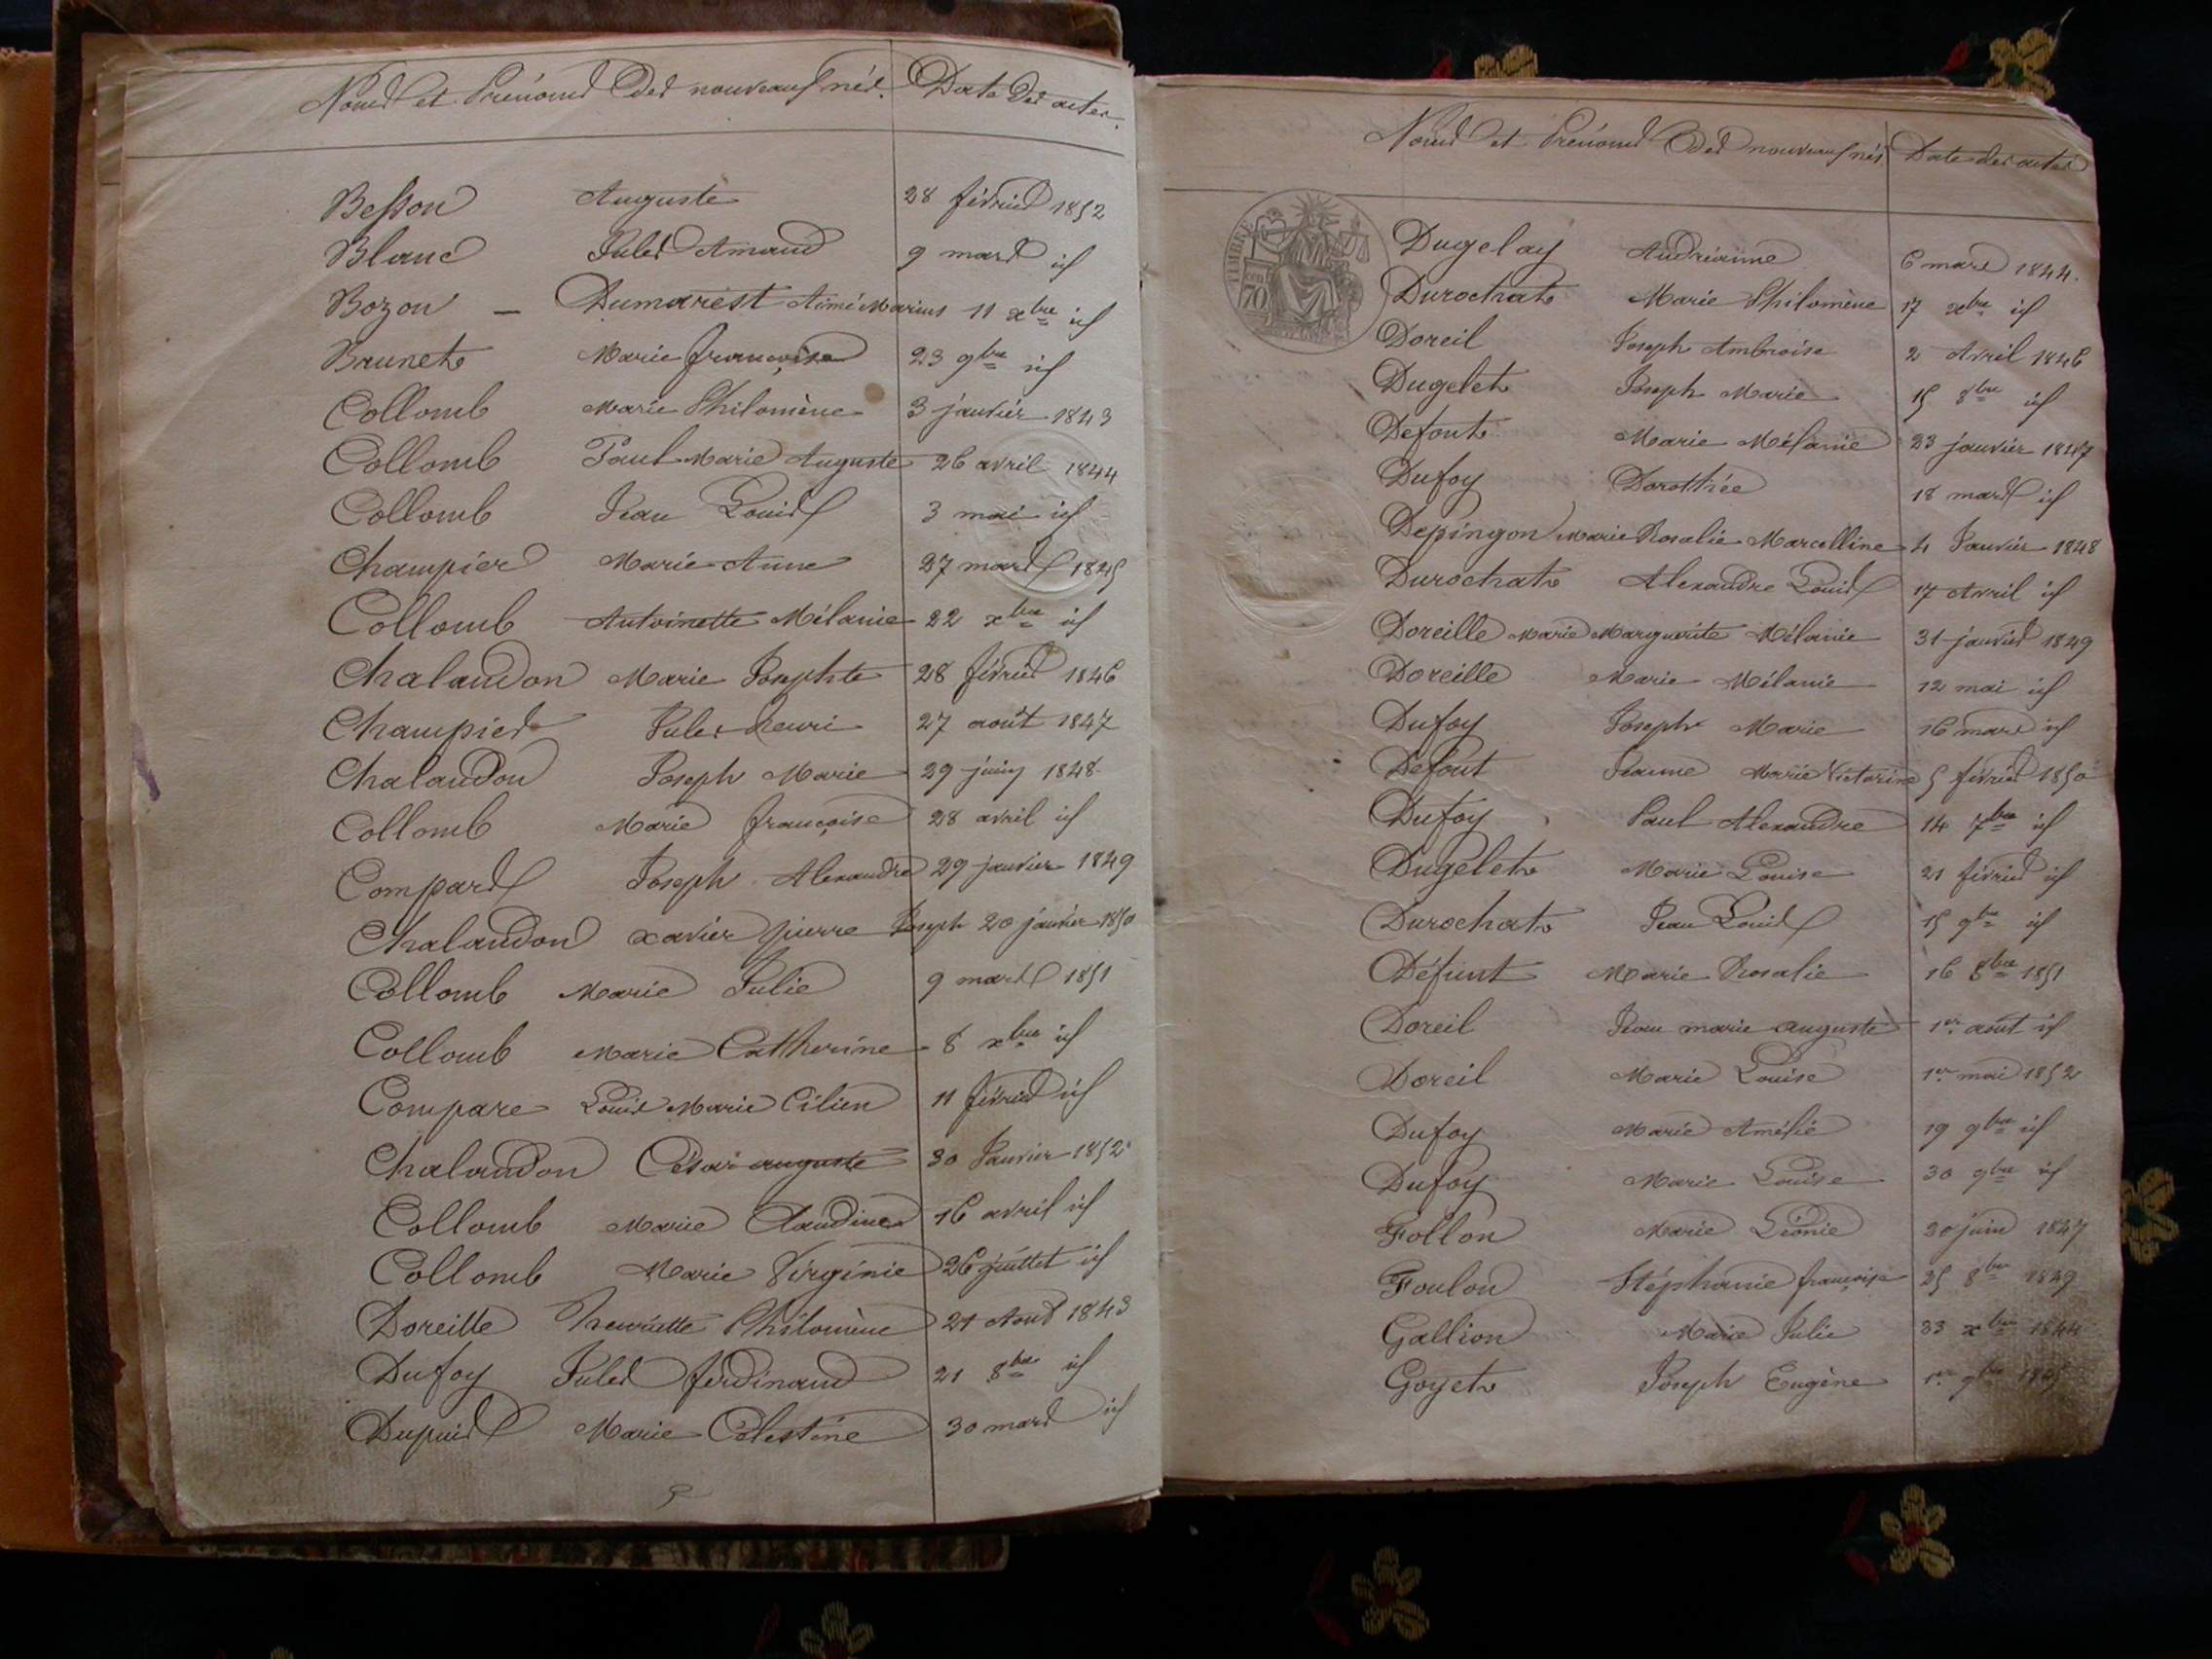 Noms et Prénoms des nouveaux nés. Date des actes.
Besson Auguste 28 février 1852
Blanc Jules Amand 9 mars id
Bozon — Dumarest Aimé Marius 11 xbre id
Brunet Marie françoise 23 9bre id
Collomb Marie Philomène 3 janvier 1843
Collomb Paul Marie Auguste 26 avril 1844
Collomb Jean Louis 3 mai id
Champier Marie Anne 27 mars 1845
Collomb Antoinette Mélanie 22 xbre id
Chalandon Marie Josephte 28 février 1846
Champier Jules henri 27 août 1847
Chalandon Joseph Marie 29 juin 1848
Collomb Marie françoise 28 avril id
Compard Joseph Alexandre 29 janvier 1849
Chalandon xavier pierre Joseph 20 janvier 1850
Collomb Marie Julie 9 mars 1851
Collomb Marie Catherine 8 xbre id
Compare Louis Marie Cilien 11 février id
Chalandon César auguste 30 Janvier 1852
Collomb Marie Claudine 16 avril id
Collomb Marie Virginie 26 juillet id
Doreille henriette Philomène 21 Aout 1843
Dufoy Jules ferdinand 21 8bre id
Dupuis Marie Célestine 30 mars id
Noms et Prénoms des nouveaux nés Date des actes
TIMBRE
70
Dugelay Andréanne 6 mars 1844.
Durochat Marie Philomène 17 xbre id
Doreil Joseph Ambroise 2 Avril 1846
Dugelet Joseph Marie 15 8bre id
Defont Marie Mélanie 23 janvier 1847
Dufoy Dorothée 18 mars id
Depingon Marie Rosalie Marcelline 4 Janvier 1848
Durochat Alexandre Louis 17 Avril id
Doreille Marie Marguerite Mélanie 31 janvier 1849
Doreille Marie Mélanie 12 mai id
Dufoy Joseph Marie 16 mars id
Defont Jeanne Marie Victorine 5 février 1850
Dufoy Paul Alexandre 14 7bre id
Dugelet Marie Louise 21 février id
Durochat Jean Louis 15 9bre id
Défunt Marie Rosalie 16 8bre 1851
Doreil Jean marie auguste 1er août id
Doreil Marie Louise 1er mai 1852
Dufoy Marie Amélie 19 9bre id
Dufoy Marie Louise 30 9bre id
Follon Marie Léonie 20 juin 1847
Foulon Stéphanie françoise 25 8bre 1849
Gallion Marie Julie xbre 1844
Goyet Joseph Eugène 1er 9bre 1845